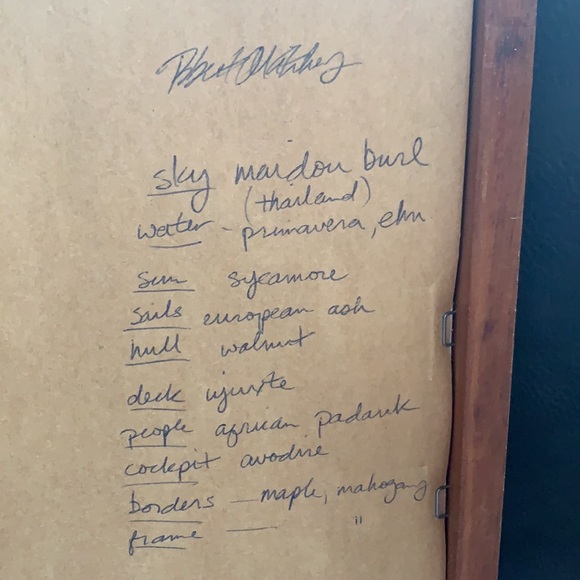 sky maidou burl
(thailand)
water - primavera, elm
sun sycamore
sails european ash
hull walnut
deck
people african padauk
cockpit avodire
borders — maple, mahogany
frame — "